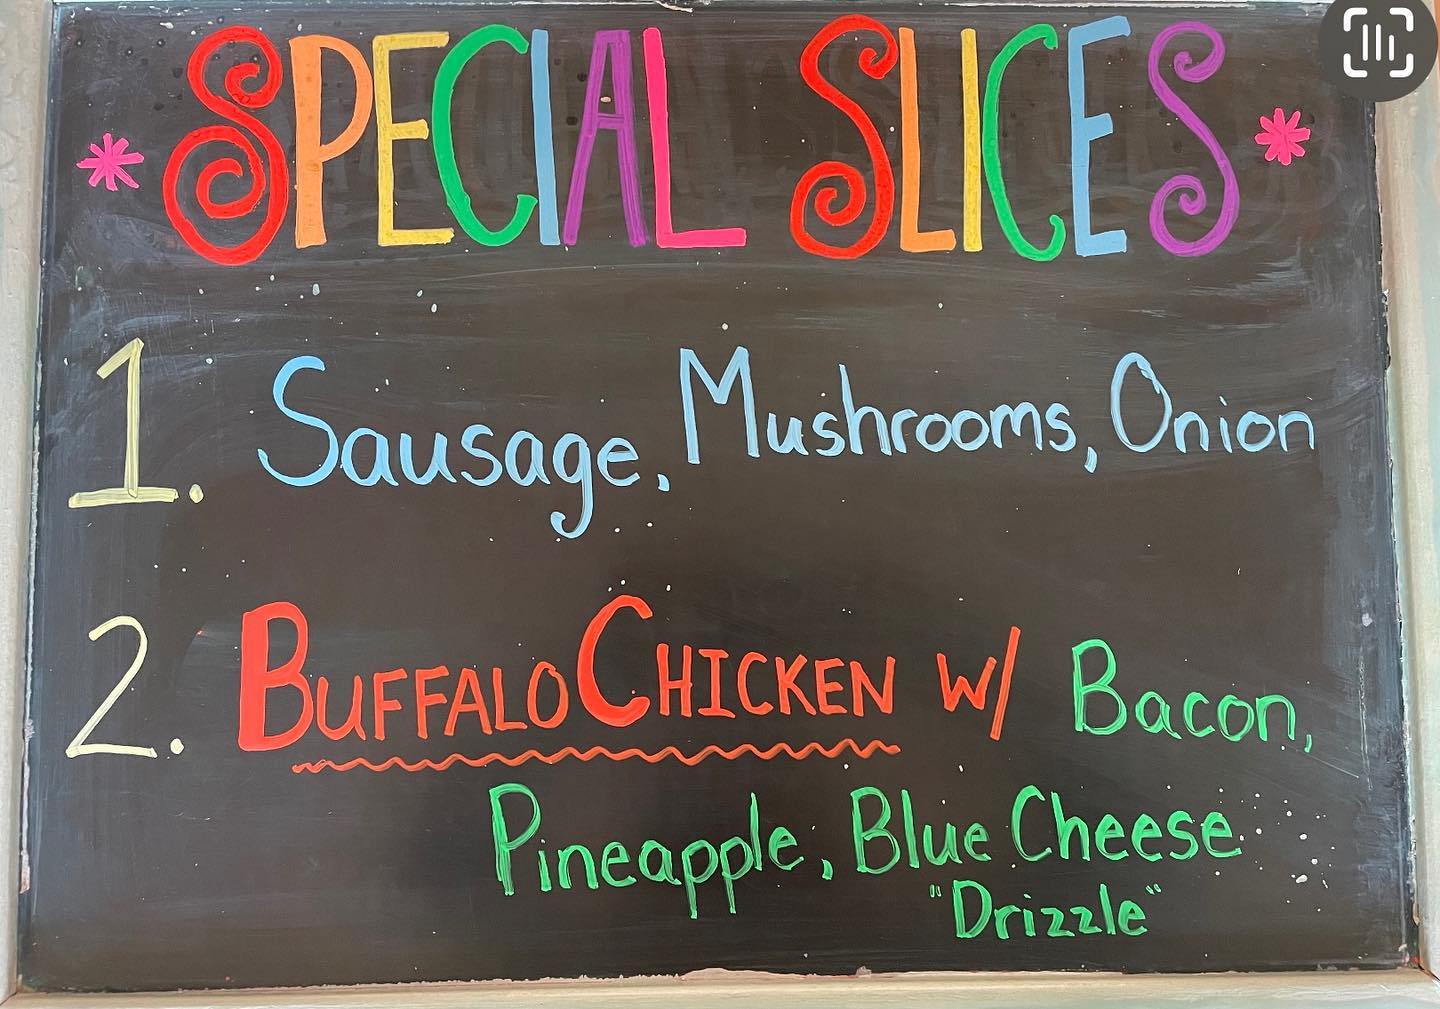 * SPECIAL SLICES *
1. Sausage, Mushrooms, Onion
2. BUFFALO CHICKEN W/ Bacon,
Pineapple, Blue Cheese
"Drizzle"